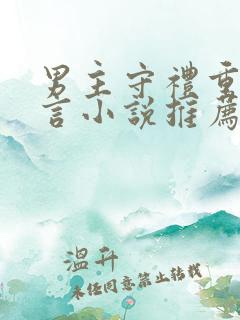 男主守禮重
言小說推薦
溫升
未经同意禁止转载